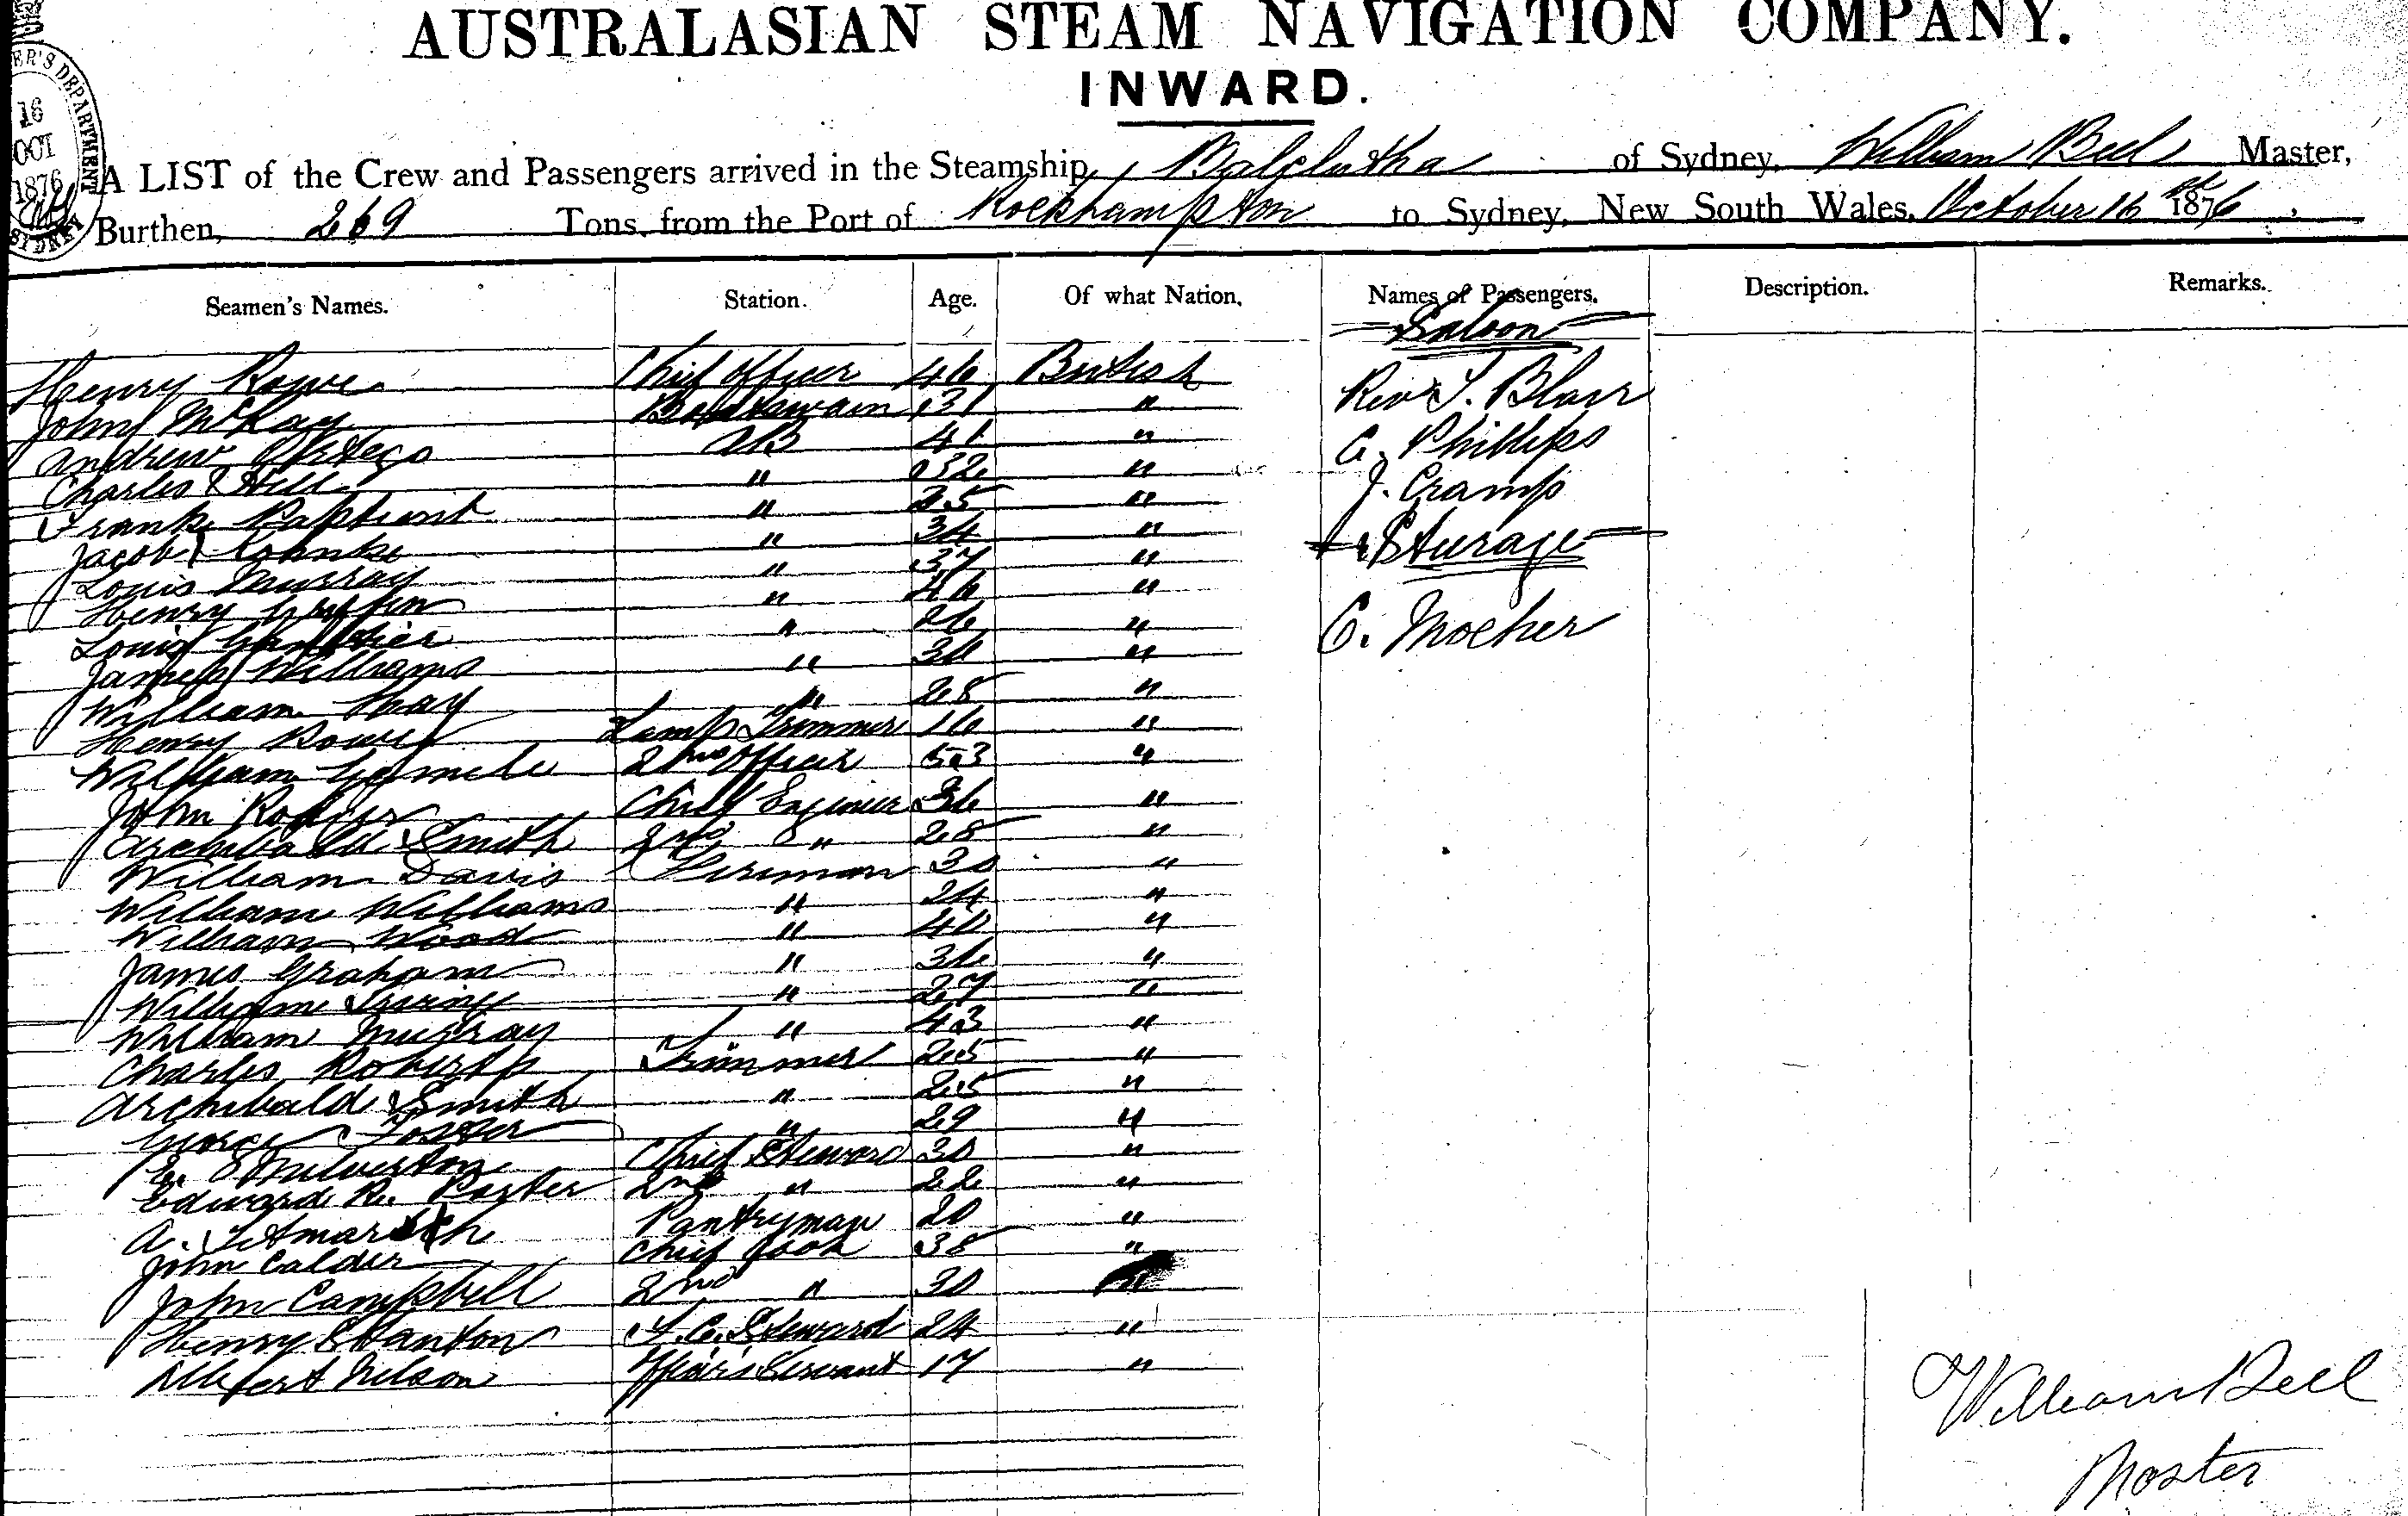 AUSTRALASIAN STEAM NAVIGATION COMPANY.
INWARD.
16
OCT
1876
SYDNEY
A LIST of the Crew and Passengers arrived in the Steamship, Balclutha of Sydney, William Beel Master,
Burthen, 269 Tons, from the Port of Rockhampton to Sydney, New South Wales, October 16 1876
Seamen's Names. Station. Age. Of what Nation. Names of Passengers. Description. Remarks.
Saloon
Henry Rowe Chief Officer 46 British Rev J. Blair
John McKay Boatswain 31 "
Andrew AB 41 " C. Phillips
Charles Hill " 32 "
Frank " 25 " J. Cramp
Jacob " 34 " Steerage
Louis Murray " 37 "
Henry Griffin " 46 "
Louis " 26 " C. Mocher
James Williams " 34 "
William Shay " 28 "
Henry Rowe Lamp Trimmer 16 "
William 2nd Officer 53 "
John Rodger Chief Engineer 36 "
Archibald Smith 2nd " 28 "
William Davis Fireman 30 "
William Williams " 24 "
William Wood " 40 "
James Graham " 36 "
William Irving " 27 "
William Murray " 43 "
Charles Roberts Trimmer 25 "
Archibald Smith " 25 "
George Foster " 29 "
E. Milverton Chief Steward 30 "
Edward R. Porter 2nd " 22 "
A. Pantryman 20 "
John Calder Chief Cook 38 "
John Campbell 2nd " 30 "
Henry Stanton F.C. Steward 24 "
Albert Nelson Officers Servant 17 "
William Beel
Master